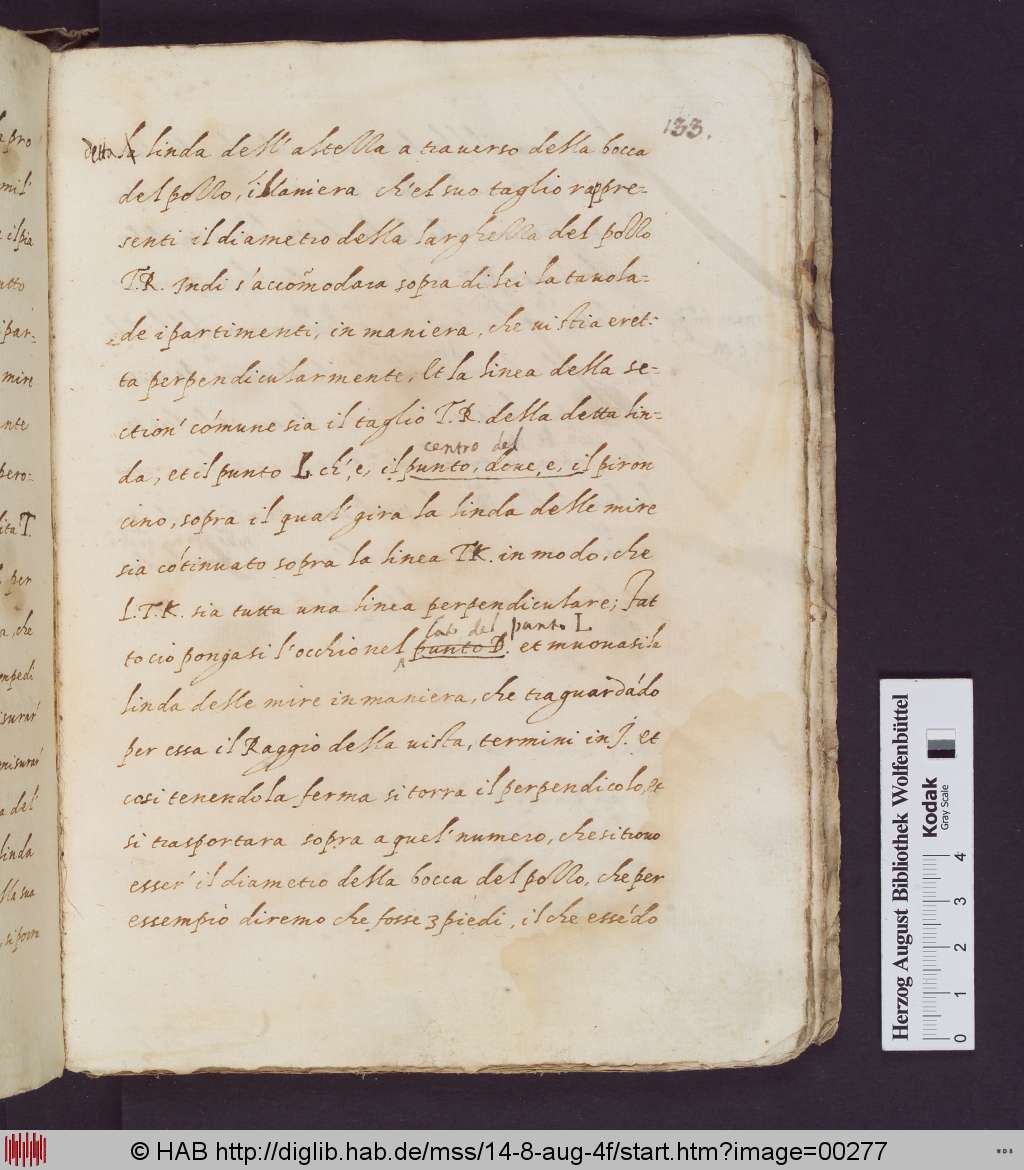 133.
detta la linda dell' astella a trauerso della bocca
del pozzo, i maniera ch'el suo taglio rappre=
senti il diametro della larghezza del pozzo
T.R. Indi s'accõmodara sopra di lei la tauola
de i partimenti, in maniera, che ui stia eret=
ta perpendicularmente, Et la linea della se=
ction' cómune sia il taglio T.R. della detta lin=
da, et il punto L ch'é, il punto, doue, e, il piron
centro del
cino, sopra il qual' gira la linda delle mire
sia cótinuato sopra la linea TK. in modo, che
L.T.K. sia tutta una linea perpendiculare; Fat
to cio pongasi l'occhio nel punto D. et muouasi la
lato del punto L
linda delle mire in maniera, che traguardádo
per essa il Raggio della uista, termini in J. Et
cosi tenendola ferma si torra il perpendicolo, et
si trasportara sopra a quel' numero, che si trouo
esser' il diametro della bocca del pozzo, che per
essempio diremo che fosse 3 piedi, il che essédo
a pro
mil'
e il pia
utto
ipar=
mire
nte
pero=
ita T.
per
a, che
mpedi
isurar'
misurar'
a del'
linda
lla sua
Herzog August Bibliothek Wolfenbüttel
Kodak
Gray Scale
0 1 2 3 4
© HAB http://diglib.hab.de/mss/14-8-aug-4f/start.htm?image=00277